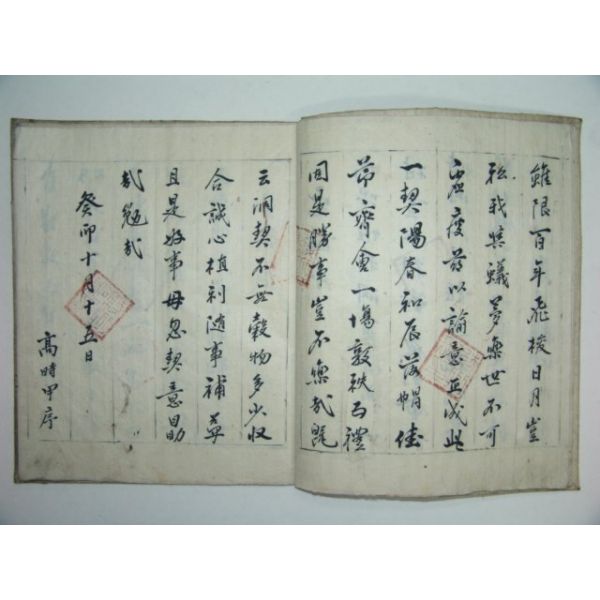 雖限百年飛梭日月豈
枉我與蟻夢樂世不可
虛度茲以論意正成此
一契陽春和辰落帽佳
節齊會一場敦秩而禮
同是勝事豈不樂哉既
云洞契不無穀物多少收
合誠心植利隨事補益
且是好事毋忽契意自助
哉勉哉
癸卯十月十五日
高時甲序